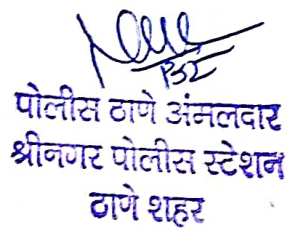 PSI
पोलीस ठाणे अंमलदार
श्रीनगर पोलीस स्टेशन
ठाणे शहर